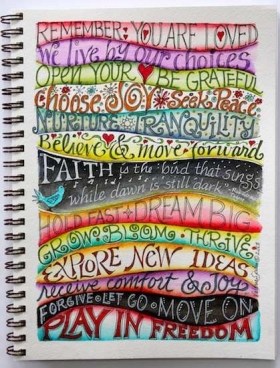 REMEMBER: YOU ARE LOVED
we live by our choices
OPEN YOUR ♥ BE GRATEFUL
choose JOY ★ Seek Peace
NURTURE TRANQUILITY
Believe & move forward
FAITH is the "bird that sings
while dawn is still dark"
HOLD FAST DREAM BIG
GROW • BLOOM • THRIVE
EXPLORE NEW IDEAS
receive comfort & Joy
FORGIVE • LET GO • MOVE ON
PLAY IN FREEDOM